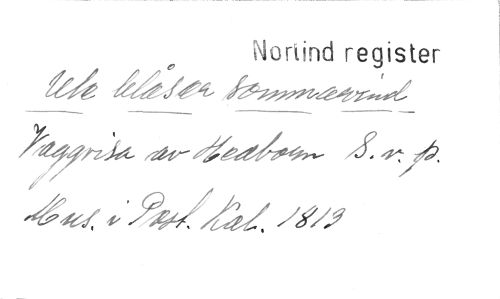 Norlind register
Ute blåser sommarvind
Vaggvisa av Hedborn S. v. p.
Mus. i Post. Kal. 1813